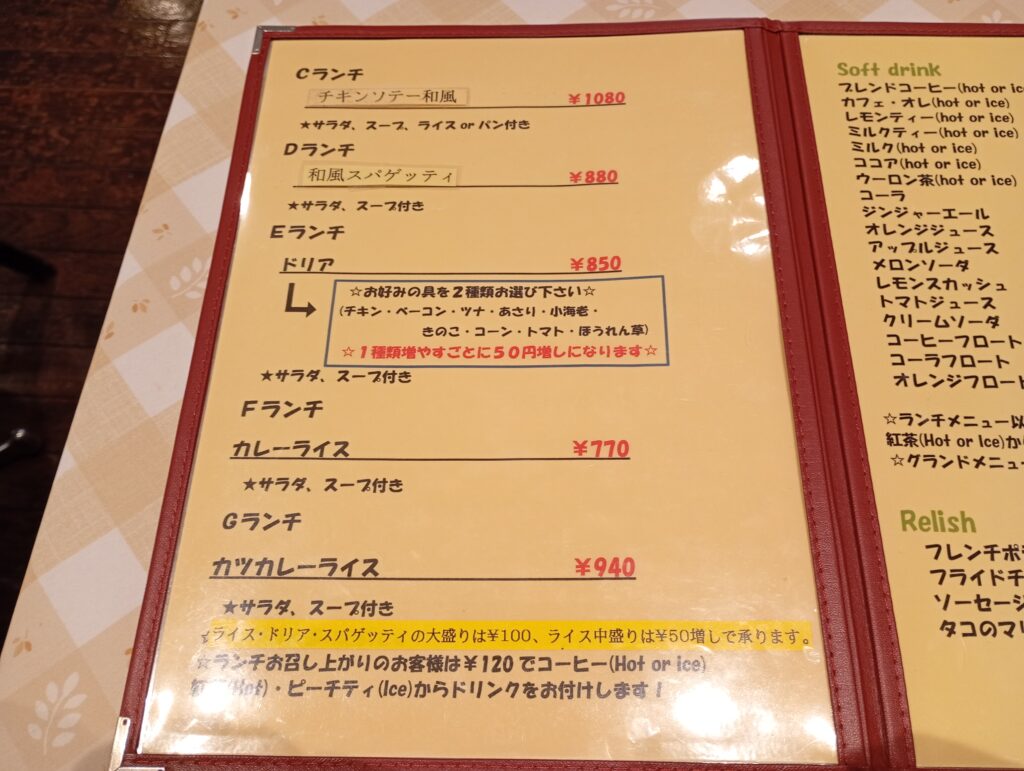 Cランチ
チキンソテー和風 ¥1080
★サラダ、スープ、ライス or パン付き
Dランチ
和風スパゲッティ ¥880
★サラダ、スープ付き
Eランチ
ドリア ¥850
☆お好みの具を2種類お選び下さい☆
(チキン・ベーコン・ツナ・あさり・小海老・
きのこ・コーン・トマト・ほうれん草)
☆1種類増やすごとに50円増しになります☆
★サラダ、スープ付き
Fランチ
カレーライス ¥770
★サラダ、スープ付き
Gランチ
カツカレーライス ¥940
★サラダ、スープ付き
☆ライス・ドリア・スパゲッティの大盛りは¥100、ライス中盛りは¥50増しで承ります。
☆ランチお召し上がりのお客様は¥120でコーヒー(Hot or ice)
紅茶(Hot)・ピーチティ(Ice)からドリンクをお付けします!
Soft drink
ブレンドコーヒー(hot or ice
カフェ・オレ(hot or ice)
レモンティー(hot or ice)
ミルクティー(hot or ice)
ミルク(hot or ice)
ココア(hot or ice)
ウーロン茶(hot or ice)
コーラ
ジンジャーエール
オレンジジュース
アップルジュース
メロンソーダ
レモンスカッシュ
トマトジュース
クリームソーダ
コーヒーフロート
コーラフロート
オレンジフロート
☆ランチメニュー以
紅茶(Hot or Ice)か
☆グランドメニュー
Relish
フレンチポ
フライドチ
ソーセージ
タコのマリ